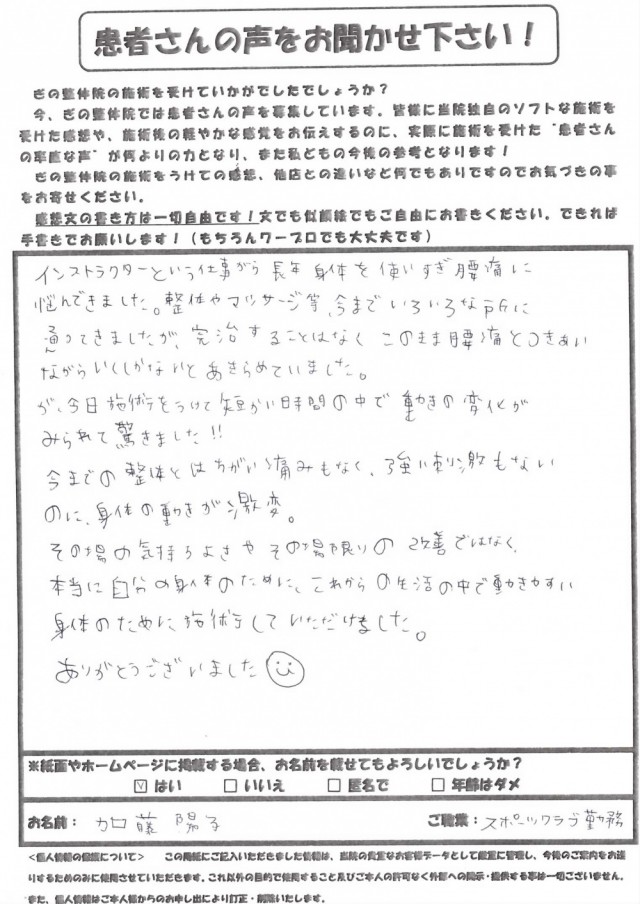 患者さんの声をお聞かせ下さい！
ぎの整体院の施術を受けていかがでしたでしょうか？
今、ぎの整体院では患者さんの声を募集しています。皆様に当院独自のソフトな施術を
受けた感想や、施術後の軽やかな感覚をお伝えするのに、実際に施術を受けた“患者さん
の率直な声”が何よりの力となり、また私どもの今後の参考となります！
ぎの整体院の施術をうけての感想、他店との違いなど何でもありですのでお気づきの事
をお寄せください。
感想文の書き方は一切自由です！文でも似顔絵でもご自由にお書きください。できれば
手書きでお願いします！（もちろんワープロでも大丈夫です）
インストラクターという仕事がら長年身体を使いすぎ腰痛に
悩んできました。整体やマッサージ等、今までいろいろな所に
通ってきましたが、完治することはなくこのまま腰痛とつきあい
ながらいくしかないとあきらめていました。
が、今日施術をうけて短かい時間の中で動きの変化が
みられて驚きました!!
今までの整体とはちがい痛みもなく、強い刺激もない
のに、身体の動きが激変。
その場の気持ちよさやその場限りの改善ではなく、
本当に自分の身体のために、これからの生活の中で動きやすい
身体のために施術していただけました。
ありがとうございました
※紙面やホームページに掲載する場合、お名前を載せてもよろしいでしょうか？
☑はい □いいえ □匿名で □年齢はダメ
お名前： 加藤 陽子 ご職業：スポーツクラブ勤務
<個人情報の保護について> この用紙にご記入いただきました情報は、当院の貴重なお客様データとして厳重に管理し、今後のご案内をお送
りするためのみに使用させていただきます。これ以外の目的で使用すること及びご本人の許可なく外部への開示・提供する事は一切ございません。
また、個人情報はご本人様からのお申し出により訂正・削除いたします。